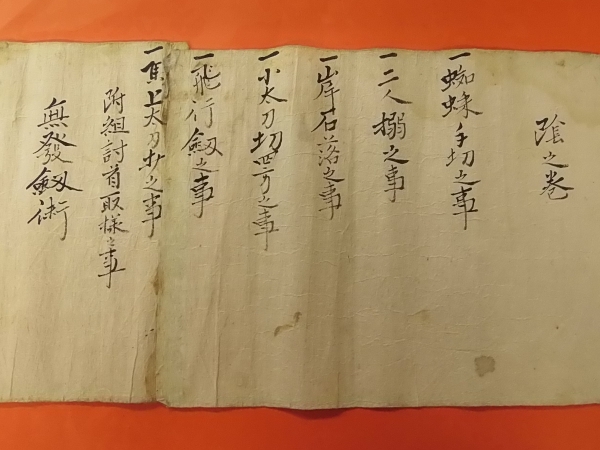 陰之巻
一蜘蛛手切之事
一二人搦之事
一岸石落之事
一小太刀切四方之事
一飛行剱之事
一馬上太刀打之事
附組討首取様之事
無發劔術